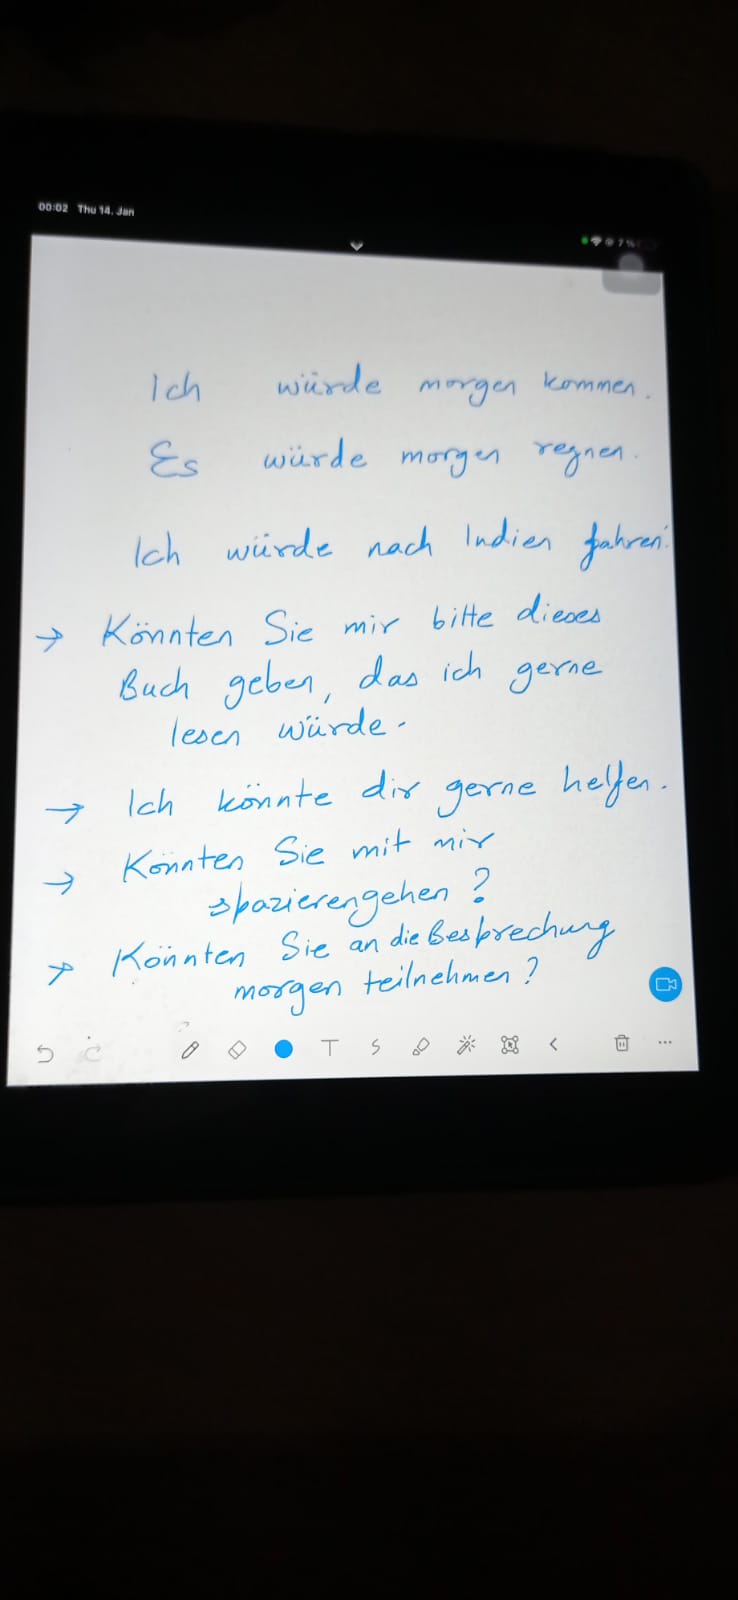 00:02 Thu 14. Jan
7%
Ich würde morgen kommen.
Es würde morgen regnen.
Ich würde nach Indien fahren.
→ Könnten Sie mir bitte dieses
Buch geben, das ich gerne
lesen würde.
→ Ich könnte dir gerne helfen.
→ Könnten Sie mit mir
spazierengehen?
→ Könnten Sie an die Besprechung
morgen teilnehmen?
T